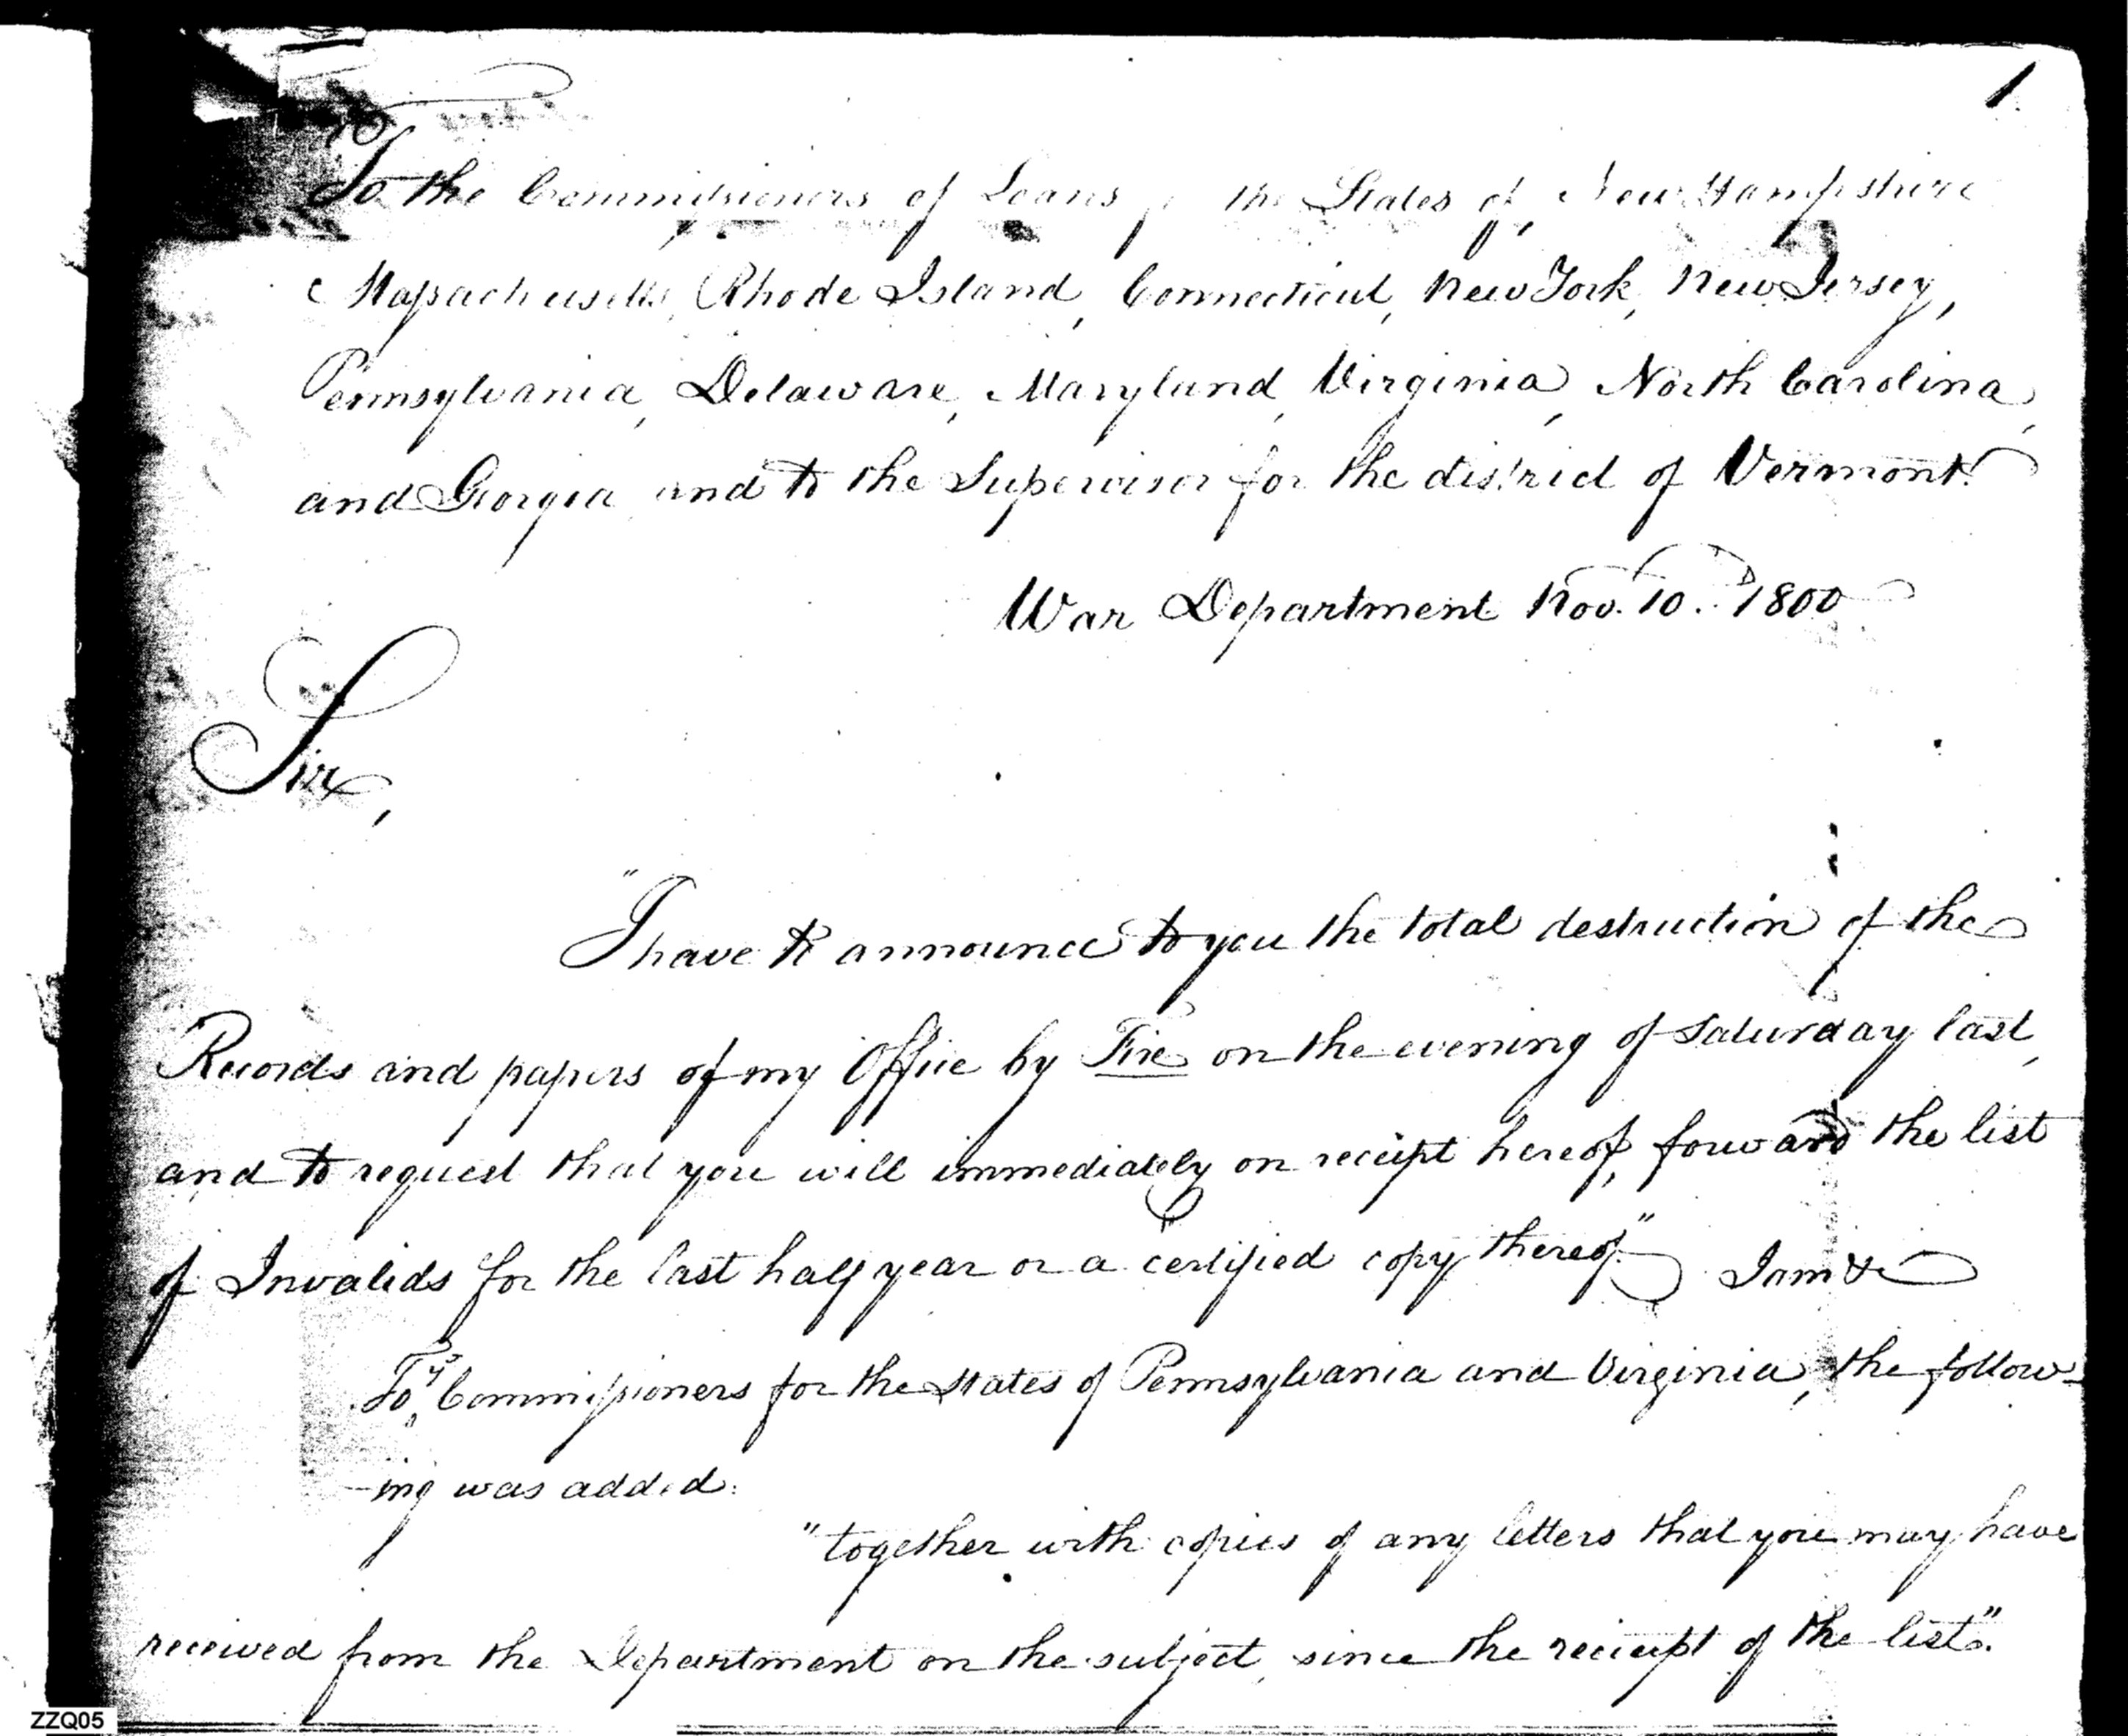 1
To the Commissioners of Loans for the States of New Hampshire
Massachusetts, Rhode Island, Connecticut, New York, New Jersey,
Pennsylvania, Delaware, Maryland, Virginia, North Carolina,
and Georgia and to the Supervisor for the district of Vermont.
War Department Nov. 10. 1800
Sir,
"I have to announce to you the total destruction of the
Records and papers of my Office by Fire on the evening of Saturday last,
and to request that you will immediately on receipt hereof, forward the list
of Invalids for the last half year or a certified copy thereof." I am &c
To ye Commissioners for the States of Pennsylvania and Virginia, the follow-
-ing was added:
"together with copies of any letters that you may have
received from the Department on the subject, since the receipt of the list".
ZZQ05